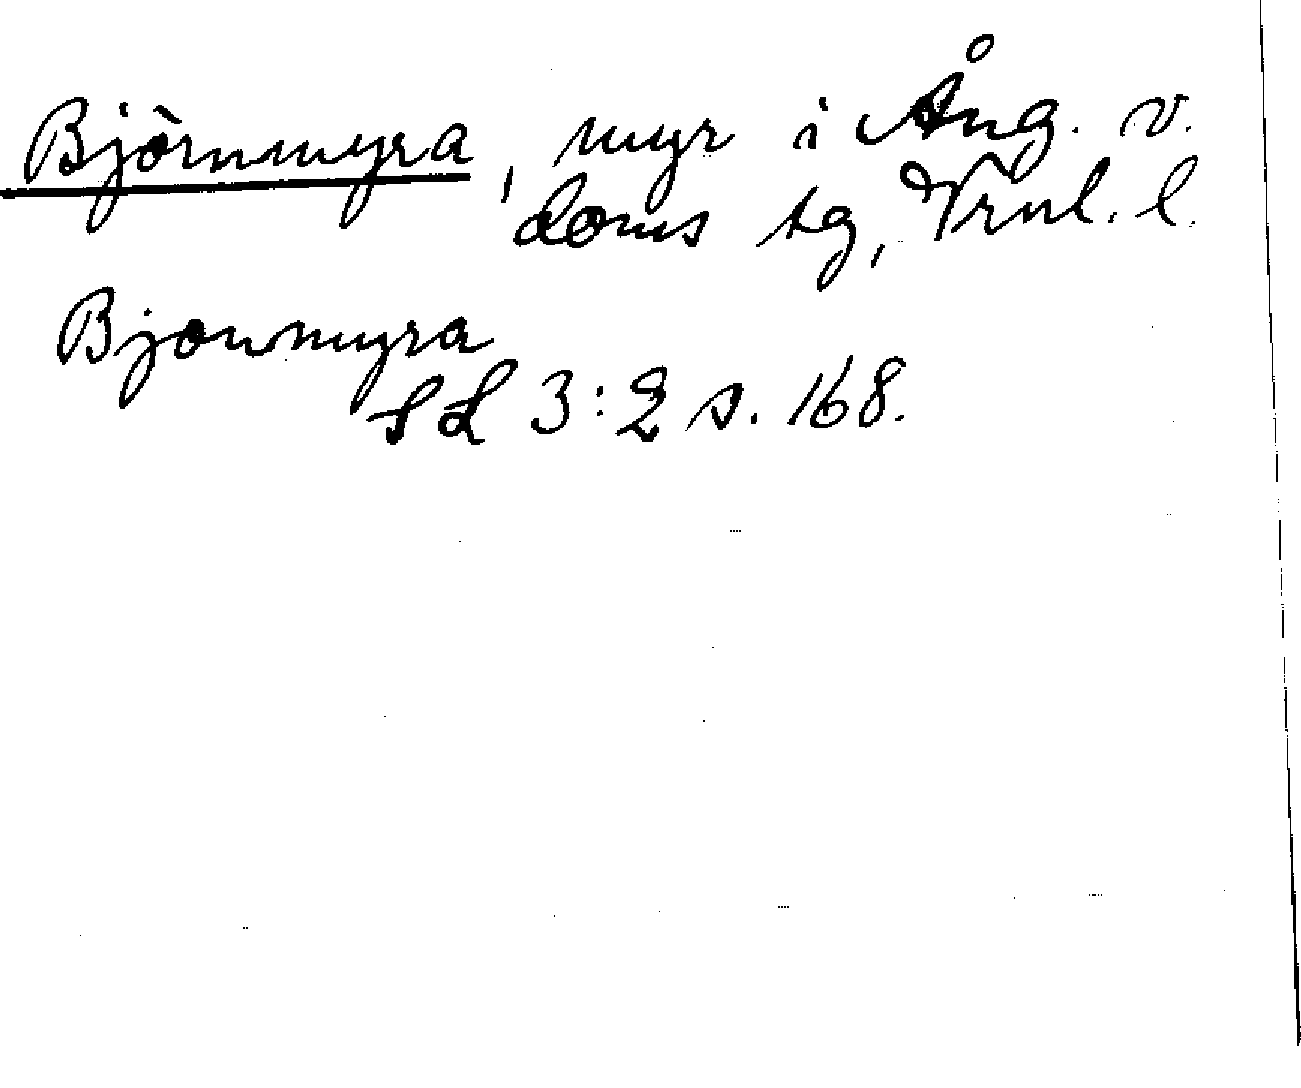 Björnmyra, myr i Ång. v.
doms tg, Vrnl. l.
Bjornmyra
SL 3:2 s. 168.